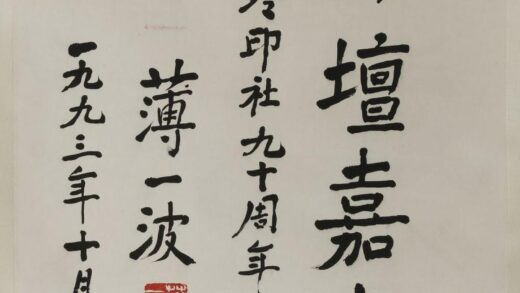 壇嘉
印社九十周年
薄一波
一九九三年十月